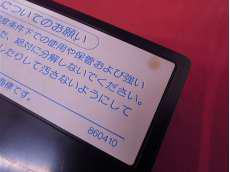 についてのお願い
条件下での使用や保管および強い
、絶対に分解しないでください。
したりして汚さないようにして
画像です。
860410